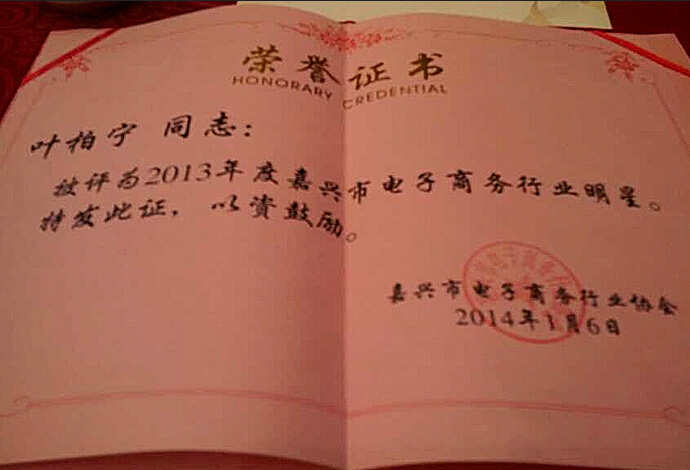 荣誉证书
HONORARY CREDENTIAL
叶柏宁 同志:
被评为2013年度嘉兴市电子商务行业明星。
特发此证，以资鼓励。
嘉兴市电子商务行业协会
2014年1月6日